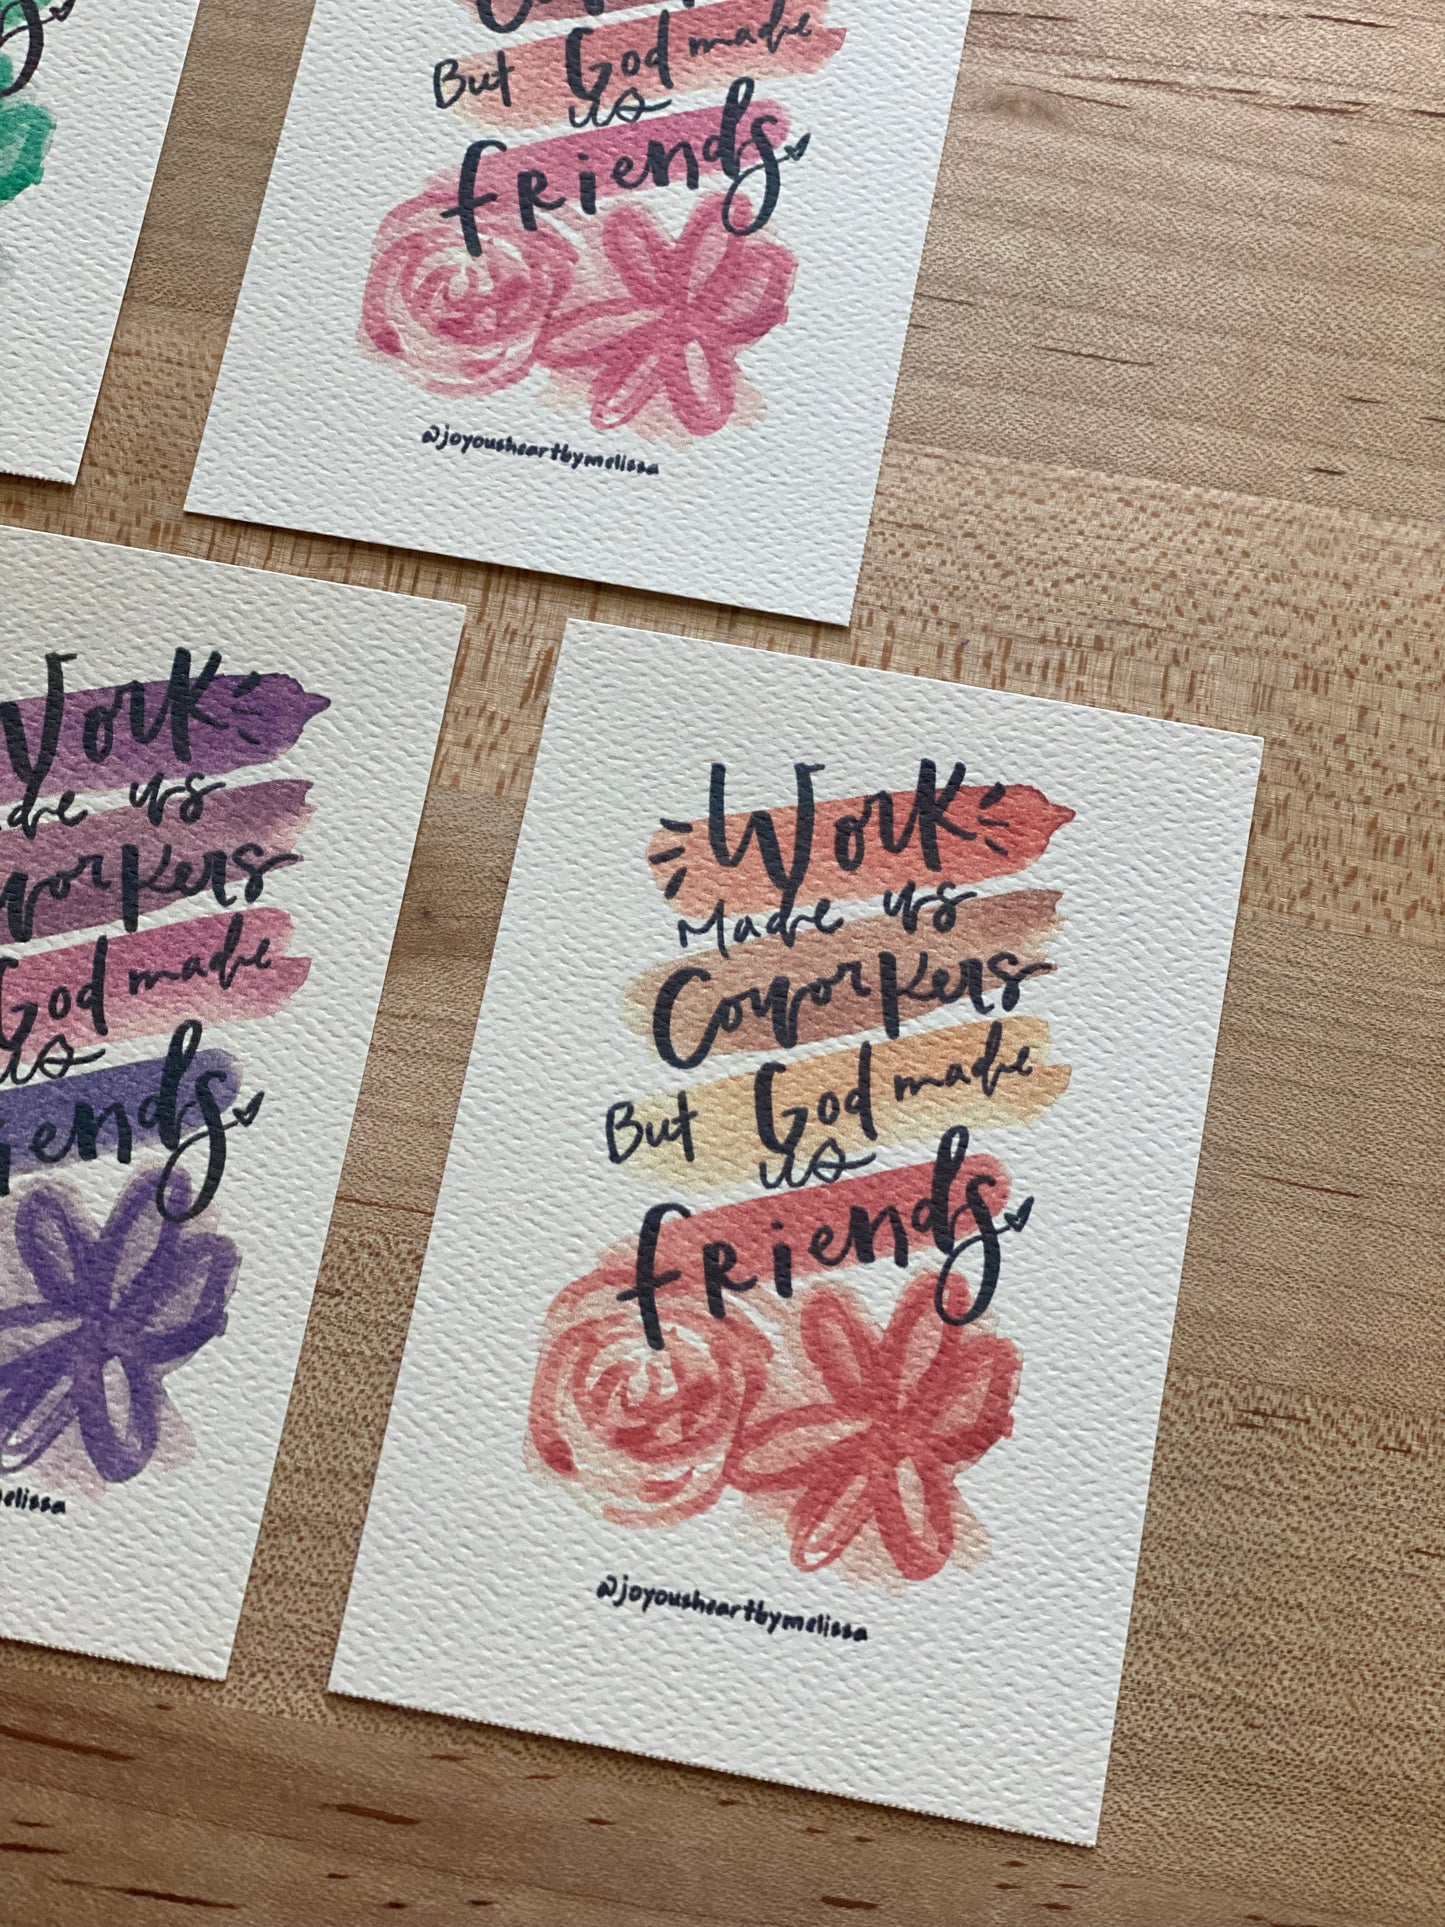 But God made
us
friends
@joyousheartbymelissa
Work
ade us
workers
God made
us
iends
melissa
Work
Made us
Coworkers
But God made
us
friends
@joyousheartbymelissa